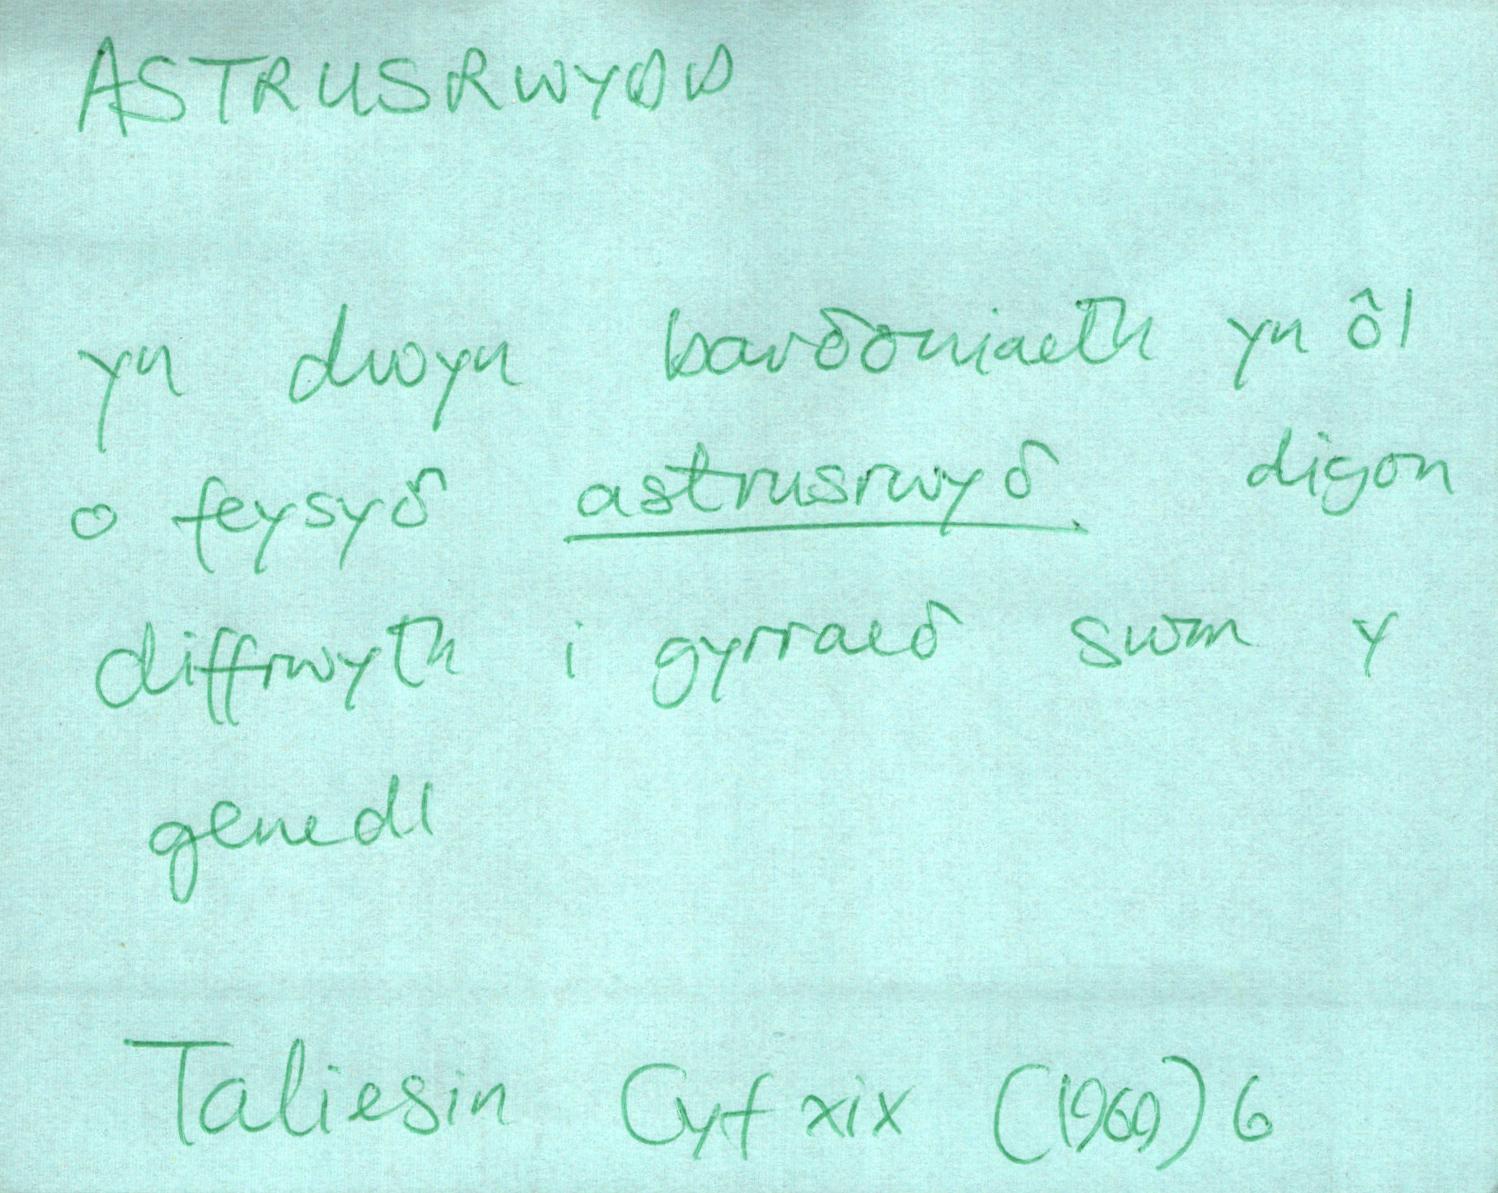 ASTRUSRWYDD
yn dwyn barδoniaeth yn ôl
o feysyδ astrusrwyδ digon
diffrwyth i gyrraeδ swm y
genedl
Taliesin Cyf xix (1969) 6